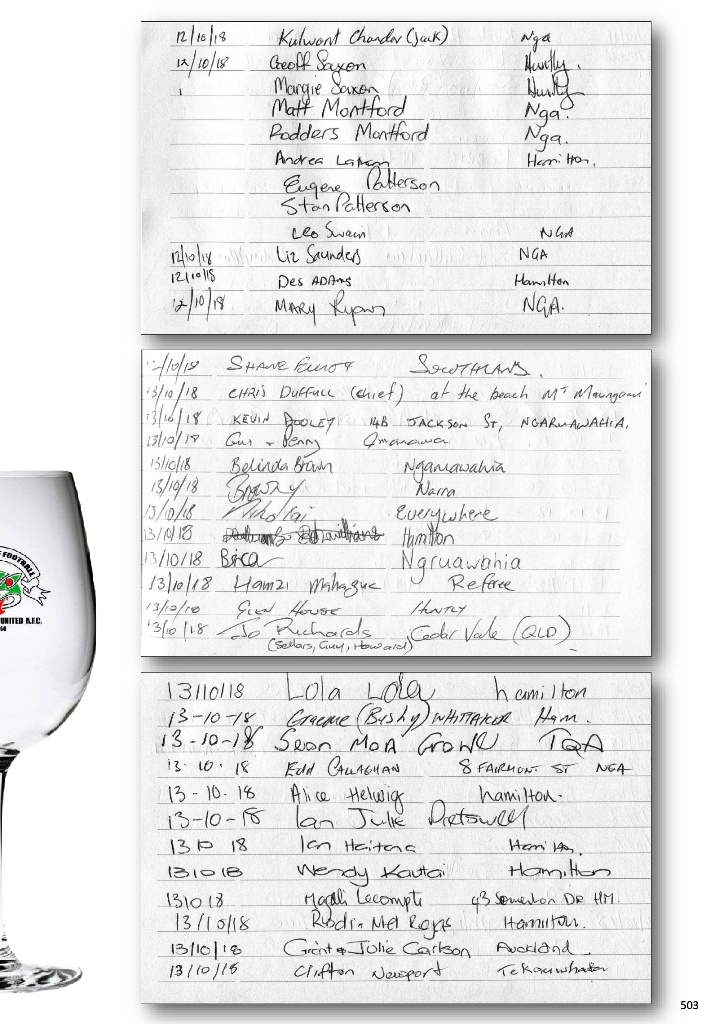 12/10/18 Kulwant Chander (Jack) Nga
12/10/18 Geoff Saxon Huntly.
Margie Saxon Huntly
Matt Montford Nga.
Rodders Montford Nga.
Andrea Hamilton.
Eugene Patterson
Stan Patterson
Leo Swain NGA
12/10/18 Liz Saunders NGA
12/10/18 Des ADAMS Hamilton
12/10/18 MARY Ryan NGA.
12/10/18 SHANE ELLIOTT
13/10/18 CHRIS DUFFULL (chief) at the beach Mt Maunganui
13/10/18 KEVIN DOOLEY 14B JACKSON St, NGARUAWAHIA.
13/10/18 Gus + Penny Omanawa
13/10/18 Belinda Brown Ngaruawahia
13/10/18 Narra
13/10/18 Nikolai Everywhere
13/10/18 Hamilton
13/10/18 Ngruawahia
13/10/18 Hamzi Referee
13/10/18 GLEN HOUSE HUNTLY
13/10/18 Jo Richards Cedar Vale (QLD)
(Sellars, Guy, Howard)
13/10/18 Lola Lola hamilton
13-10-18 Graeme (Bishy) WHITTAKER Ham.
13-10-18 Sean TGA
13.10.18 EDD CALLAGHAN 8 FAIRMONT ST NGA
13-10-18 Alice Helwig hamilton.
13-10-18 Ian Julie
13 10 18 Ian Haitana Hamilton.
131018 Wendy Kautai Hamilton
131018 Magali Lecompte 43 Somerton DR HM.
13/10/18 Hamilton.
13/10/18 Grant & Julie Carlson Auckland
13/10/18 Clifton Newport Te Kauwhata
FOOTBALL
UNITED A.F.C.
503